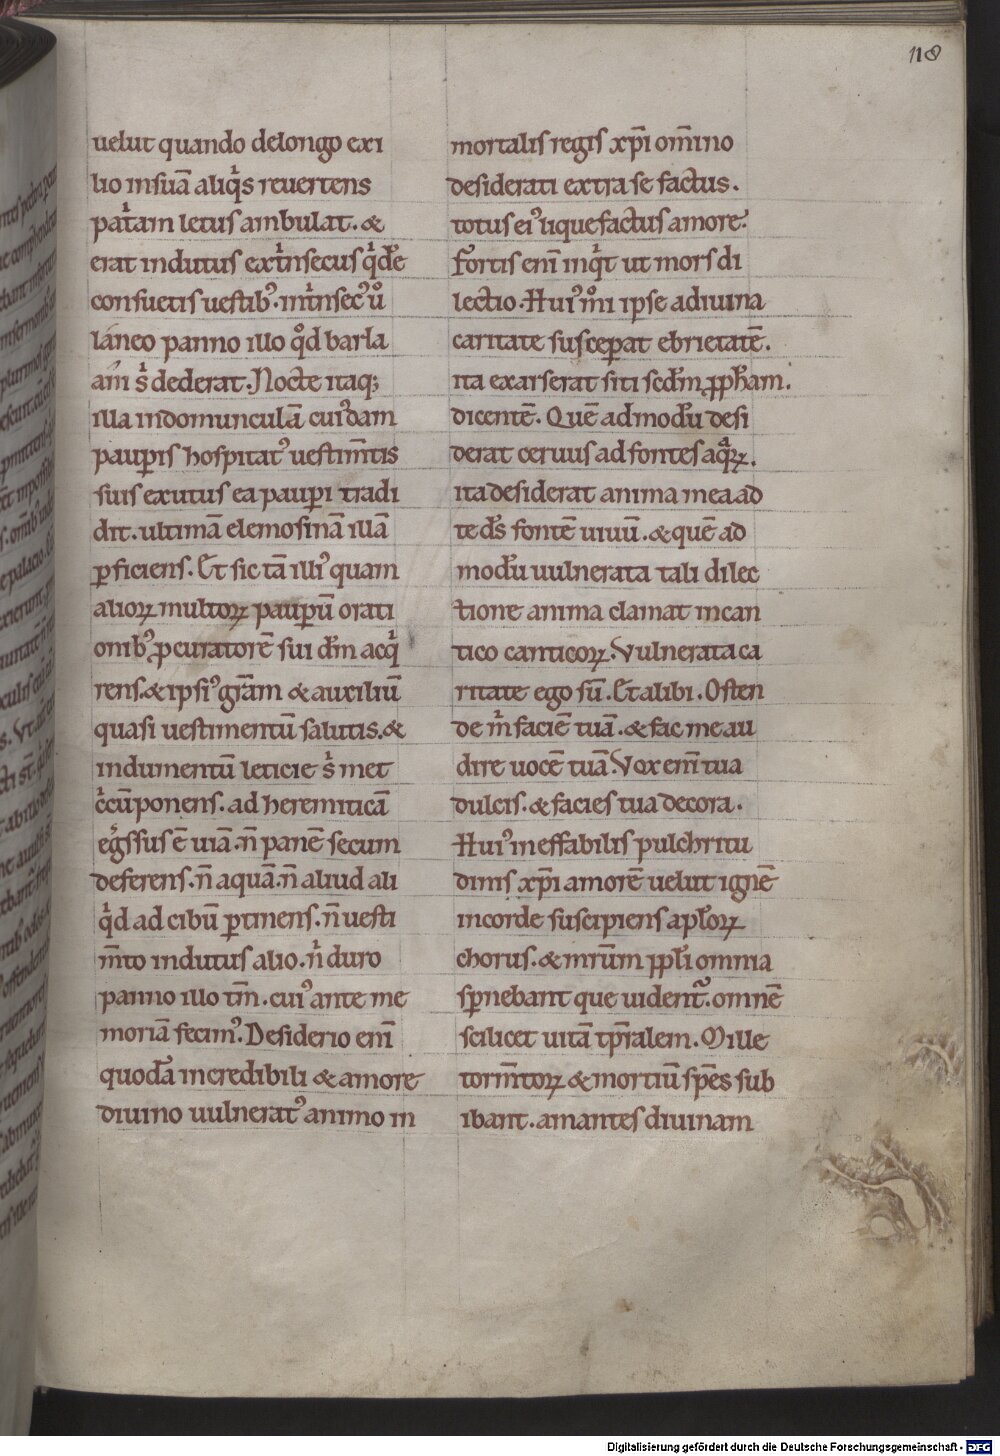 118
uelut quando delongo exi
lio insuā aliqͥs reuertens
patͥam letus ambulat. &
erat indutus extͥnsecus qͥdē
consuetis uestibꝰ. intͥnsecꝰ uͦ
laneo panno illo qͦd barla
am sͥ dederat. Nocte itaq;
illa indomunculā cuiꝰdam
paupis hospitatꝰ uestim̄tis
suis exutus ea paupi tradi
dit. ultimā elemosinā illā
ꝑficiens. Et sic tā illiꝰ quam
alioꝝ multoꝝ pauꝑū orati
onibꝰ ꝓcuratorē sui dn̄m acqͥ
rens. & ipsiꝰ gr̄am & auxiliū
quasi uestimentū salutis. &
indumentū leticie sͥ met
cͥcūponens. ad heremiticā
egͤssus ē uiā. n̄ panē secum
deferens. n̄ aquā. n̄ aliud ali
qͥd ad cibū ꝑtinens. n̄ uesti
m̄to indutus alio. nͥ duro
panno illo tm̄. cuiꝰ ante me
moriā fecimꝰ. Desiderio enī
quodā incredibili & amore
diuino uulneratꝰ animo in
mortalis regis xp̄i om̄ino
desiderati extra se factus.
totus eiꝰ liquefactus amore.
Fortis enī inqͥt ut mors di
lectio. Huiꝰ mͦi ipse adiuina
caritate susceperat ebrietatē.
ita exarserat siti scd̄m ꝓph̄am.
dicentē. Quē admodū desi
derat ceruus ad fontes aqͣꝝ.
ita desiderat anima mea ad
te d̄s fontē uiuū. & quē ad
modū uulnerata tali dilec
tione anima clamat incan
tico canticoꝝ. Vulnerata ca
ritate ego sū. Et alibi. Osten
de mͥ faciē tuā. & fac me au
dire uocē tuā. Vox enī tua
dulcis. & facies tua decora.
Huiꝰ ineffabilis pulchritu
dinis xp̄i amorē uelut ignē
incorde suscipiens apl̄oꝝ
chorus. & mr̄um ppl̄i omnia
spnebant que uident᷑. omnē
scilicet uitā tp̄ralem. Mille
torm̄toꝝ & mortiū sp̄es sub
ibant. amantes diuinam
Digitalisierung gefördert durch die Deutsche Forschungsgemeinschaft - DFG